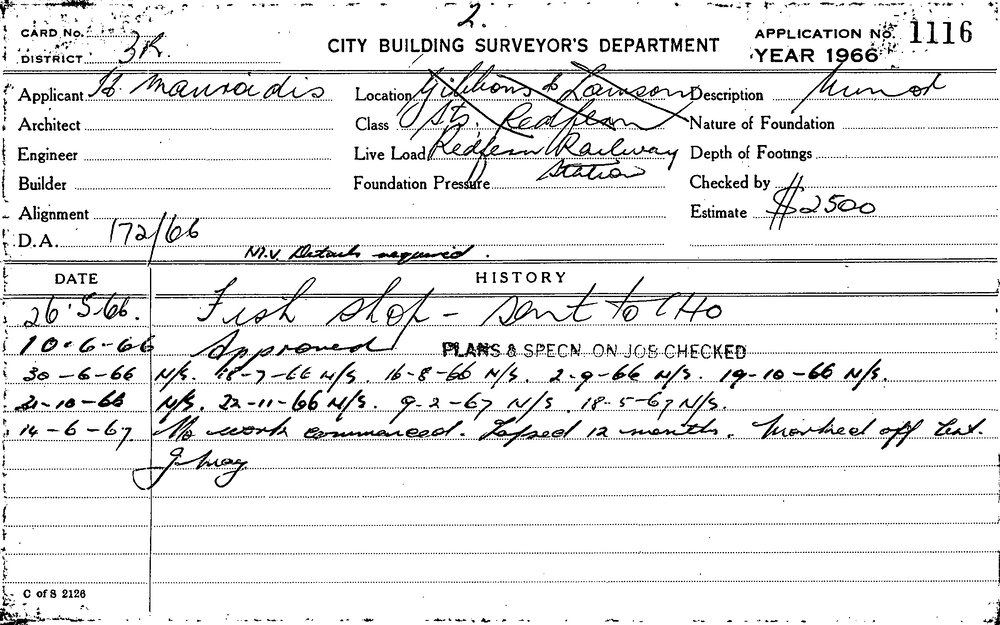 2.
CARD No.
DISTRICT 3R
CITY BUILDING SURVEYOR'S DEPARTMENT
APPLICATION No. 1116
YEAR 1966
Applicant H. Mavroidis
Location Gibbons & Lawson
Description Minor
Architect
Class Sts. Redfern
Nature of Foundation
Engineer
Live Load Redfern Railway
Depth of Footings
Station
Builder
Foundation Pressure
Checked by
Alignment
Estimate $2500
D.A. 172/66
M.V. Details required.
DATE HISTORY
26.5.66. Fish shop - sent to CHO
10-6-66 Approved PLANS & SPECN. ON JOB CHECKED
30-6-66 N/S. 18-7-66 N/S. 16-8-66 N/S. 2-9-66 N/S. 19-10-66 N/S.
21-10-66 N/S. 22-11-66 N/S. 9-2-67 N/S. 18-5-67 N/S.
14-6-67 No work commenced. Lapsed 12 months. Marked off
C of S 2126